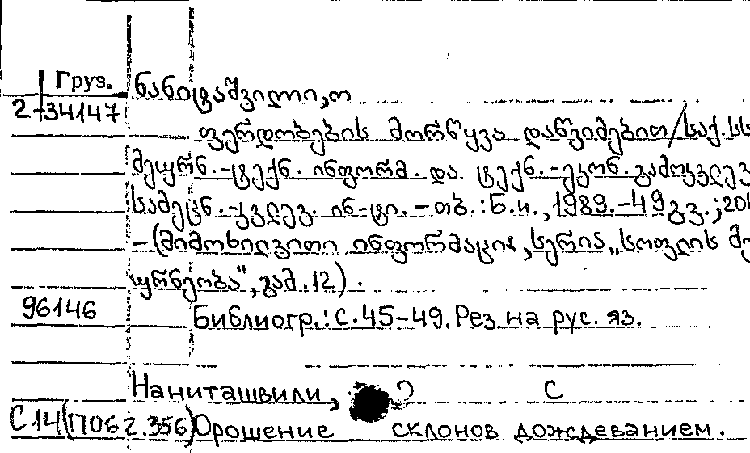 Груз. ნანიტაშვილი, ო
2-34147
ფერდობების მორწყვა დაწვიმებით / საქ. სს
მეცნ.-ტექნ. ინფორმ. და ტექნ.-ეკონ. გამოკვლევ
სამეცნ.-კვლევ. ინ-ტი. - თბ. : Б.и., 1989. - 49 გვ. ; 20
- (მიმოხილვითი ინფორმაცია, სერია „სოფლის მე
ურნეობა", გამ. 12).
96146
Библиогр.: с. 45-49. Рез на рус. яз.
Наниташвили, О С
С14(П062.356) Орошение склонов дождеванием.